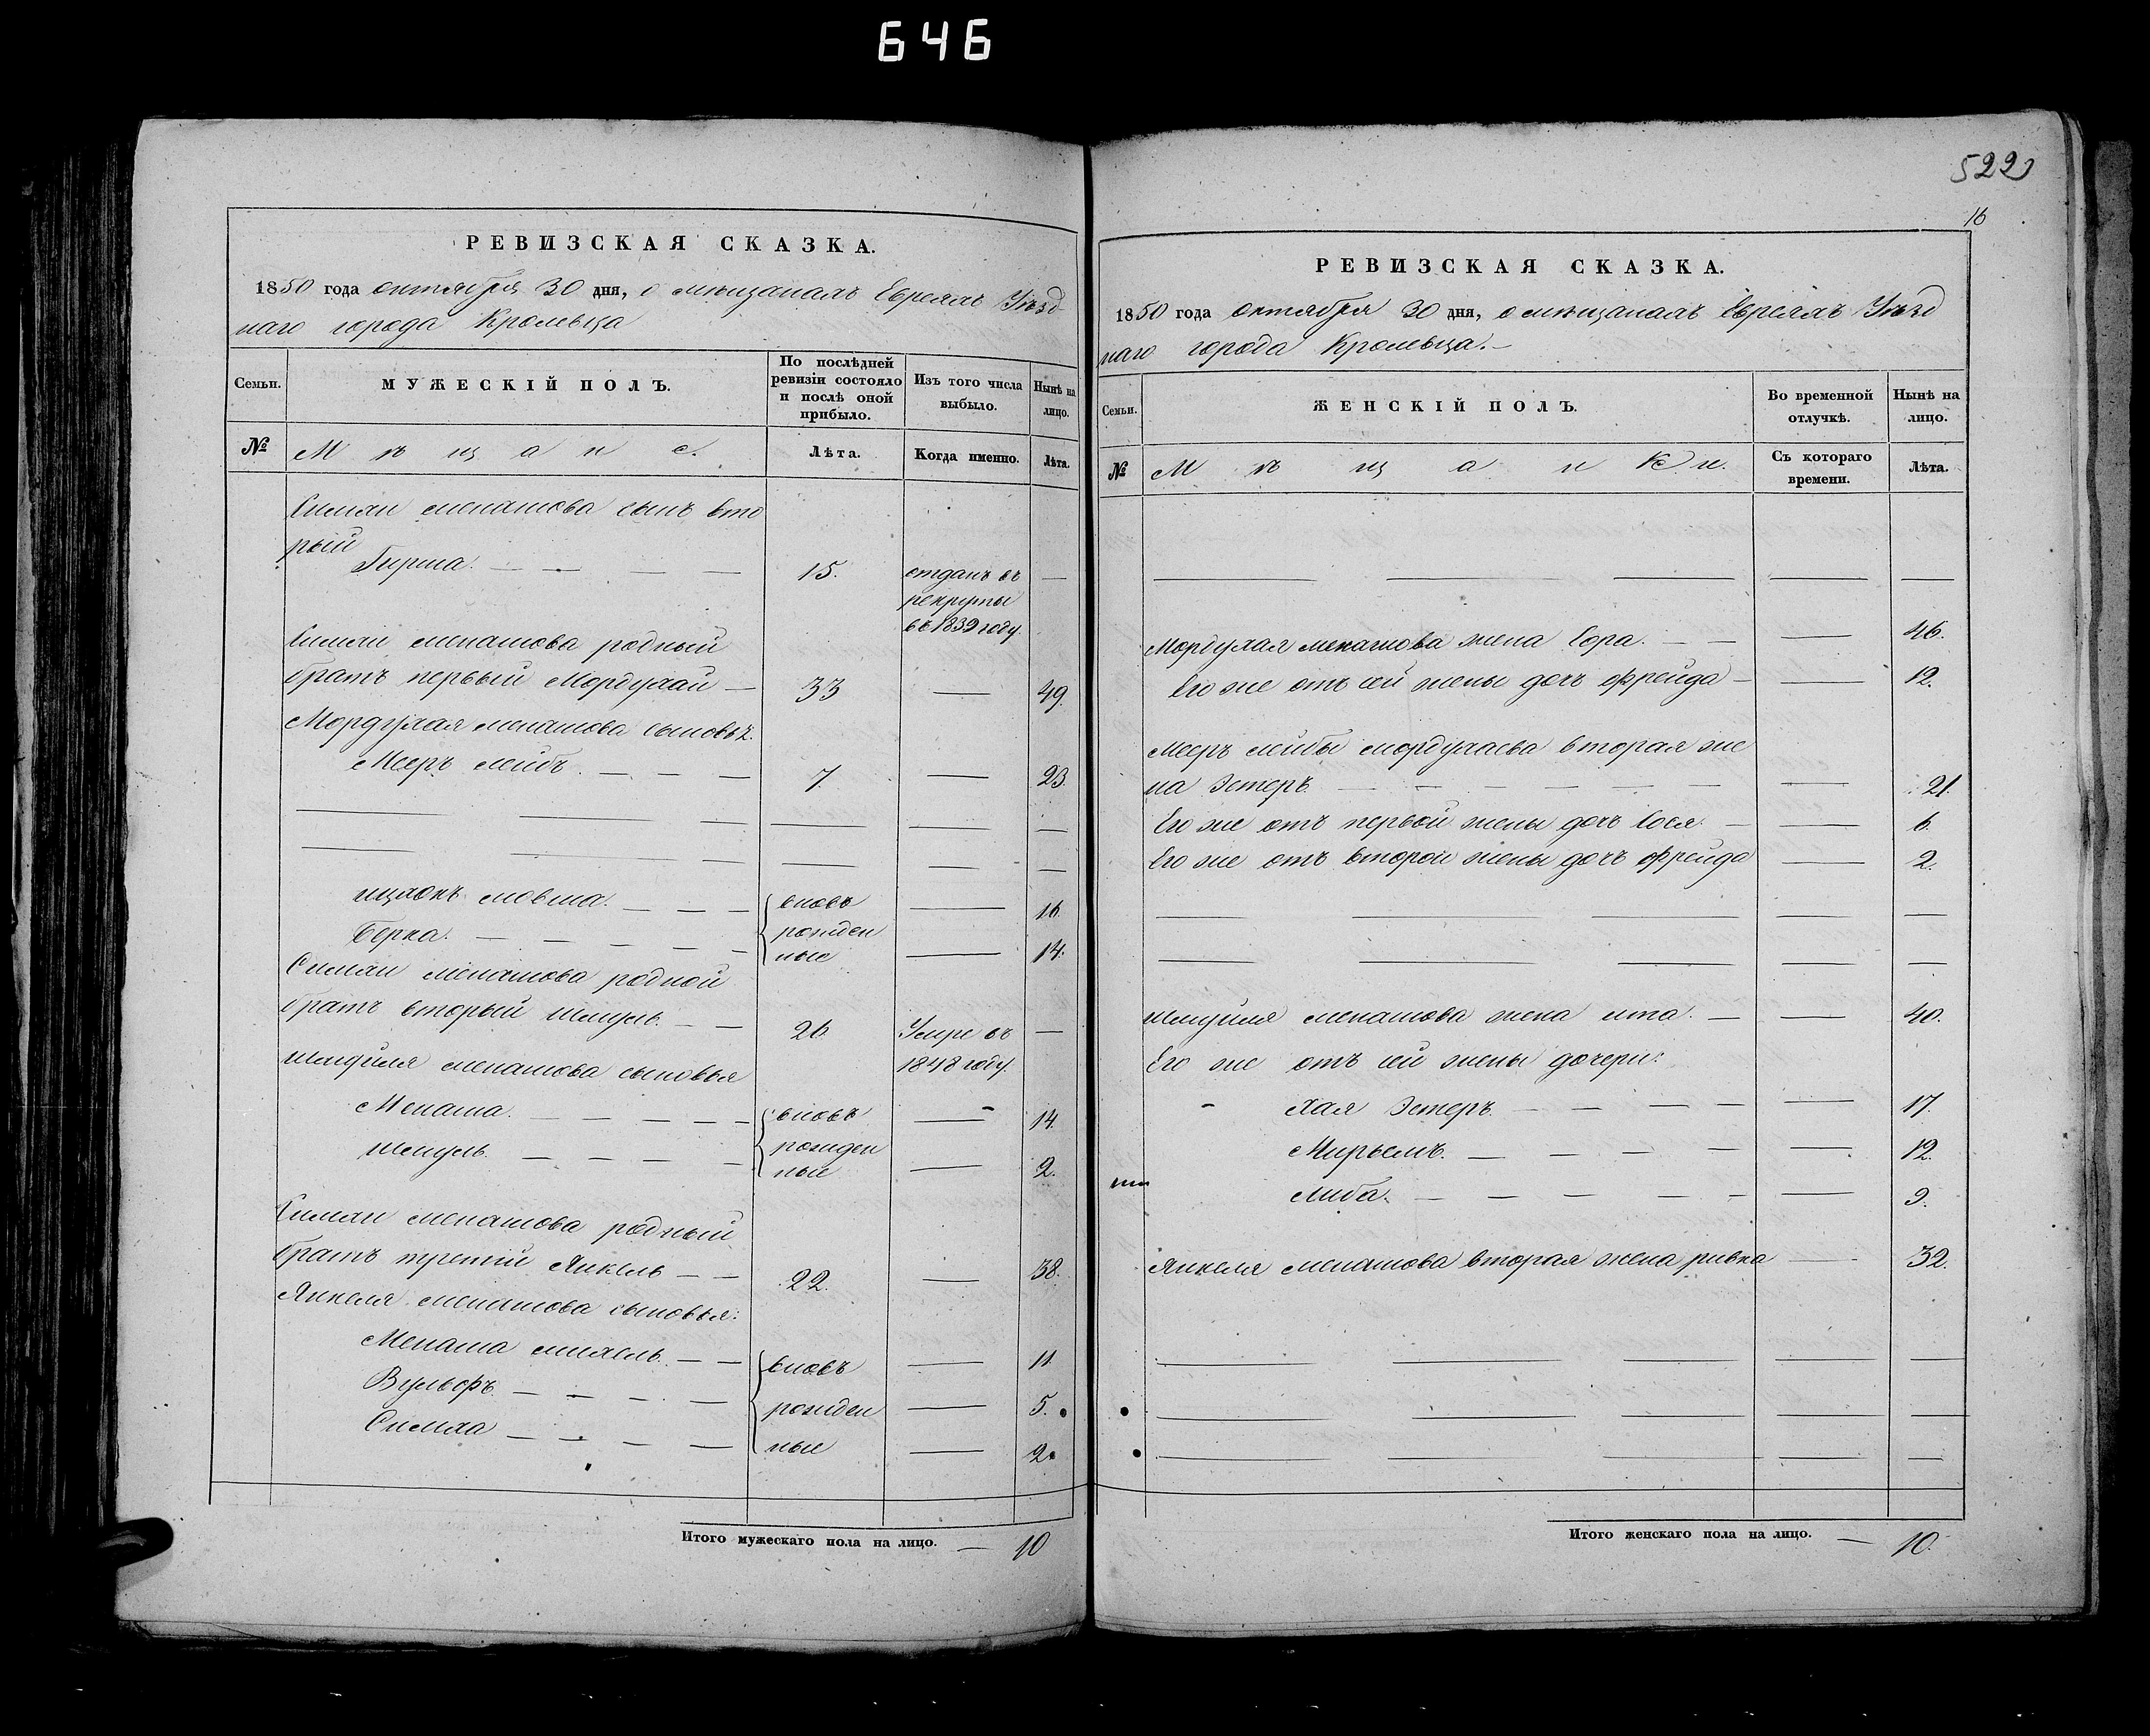 646
РЕВИЗСКАЯ СКАЗКА.
1850 года октября 30 дня, о мѣщанахъ Евреяхъ Уѣзд
наго города Кролевца
Семьи.
МУЖЕСКІЙ ПОЛЪ.
По послѣдней
ревизіи состояло
и послѣ оной
прибыло.
Изъ того числа
выбыло.
Нынѣ на
лицо.
№
Мѣщане.
Лѣта.
Когда именно.
Лѣта.
менашова сынъ вто
рый
Гирша. 15. отданъ въ
рекруты
въ 1839 году.
менашова родный
братъ первый Мордухай 33 49.
Мордухая менашова сыновья.
Мееръ лейбъ. 7. 23.
мовша. вновь 16.
Берка. рожден 14.
ные
менашова родной
братъ вторый шмуль. 26. Умре въ
шмуйля менашова сыновья 1848 году.
Менаша. вновь 14.
шмуль. рожден
ные 2.
менашова родный
братъ третій Янкель 22. 38.
Янкеля менашова сыновья:
Менаша вновь 11.
Вульфъ. рожден 5.
Симха ные 2.
Итого мужескаго пола на лицо. 10
522
16
РЕВИЗСКАЯ СКАЗКА.
1850 года октября 30 дня, о мѣщанахъ Евреяхъ Уѣзд
наго города Кролевца.
Семьи.
ЖЕНСКІЙ ПОЛЪ.
Во временной
отлучкѣ.
Нынѣ на
лицо.
№
Мѣщанки.
Съ котораго
времени.
Лѣта.
Мордухая менашова жена Сора. 46.
Его же отъ сей жены дочь фрейда 12.
Мееръ лейбы мордухаева вторая же
на Эстеръ. 21.
Его же отъ первой жены дочь 6.
Его же отъ второй жены дочь фрейда 2.
шмуйля менашова жена ита. 40.
Его же отъ сей жены дочери:
Хая Эстеръ. 17.
Мирьемъ. 12.
Либа. 9.
Янкеля менашова вторая жена ривка 32.
Итого женскаго пола на лицо. 10.